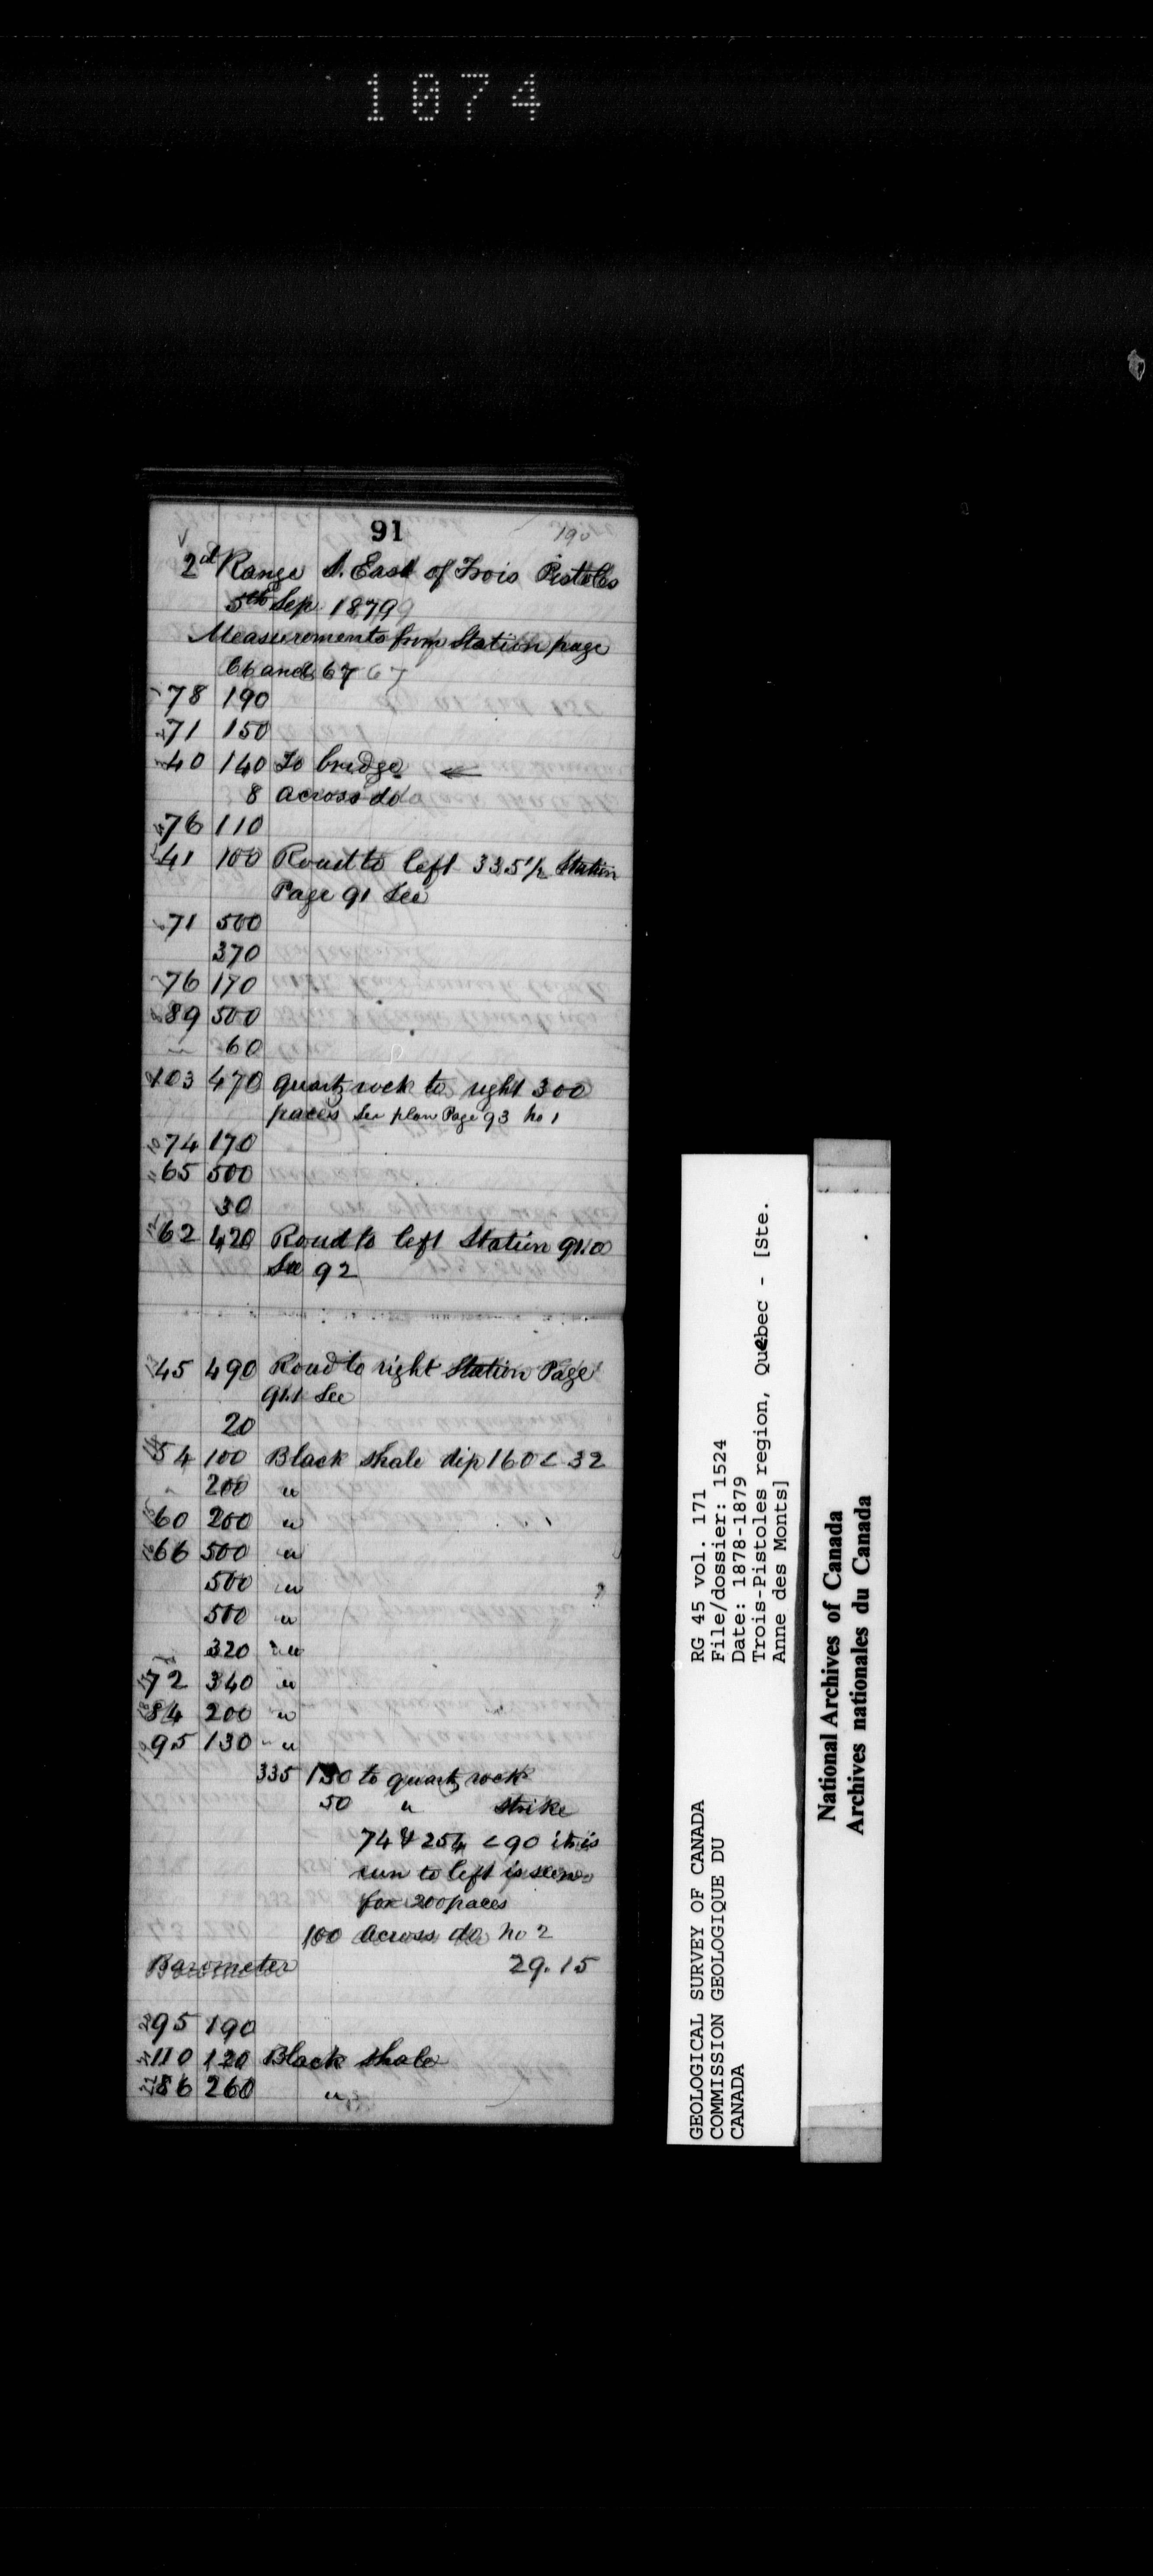 1074
91
190
2d Range S. East of Trois Pistoles
5th Sep 1879
Measurements from Station page
66 and 67
78 190
71 150
40 140 To bridge
8 across do
76 110
41 100 Road to left 335 1/2 Station
Page 91 See
71 500
370
76 170
89 500
60
103 470 quartz rock to right 300
paces See plan Page 93 No 1
74 170
65 500
30
62 420 Road to left Station 91.0
See 92
45 490 Road to right Station Page
91.1 See
20
54 100 Black shale dip 160 < 32
200 "
60 200 "
66 500 "
500 "
500 "
320 "
72 340 "
84 200 "
95 130 "
335 130 to quartz rock
50 " strike
74 & 254 < 90 it is
run to left is seen
for 200 paces
100 across do No 2
Barometer 29.15
95 190
110 120 Black shale
86 260 "
GEOLOGICAL SURVEY OF CANADA
COMMISSION GEOLOGIQUE DU
CANADA
RG 45 vol. 171
File/dossier: 1524
Date: 1878-1879
Trois-Pistoles region, Quebec - [Ste.
Anne des Monts]
National Archives of Canada
Archives nationales du Canada